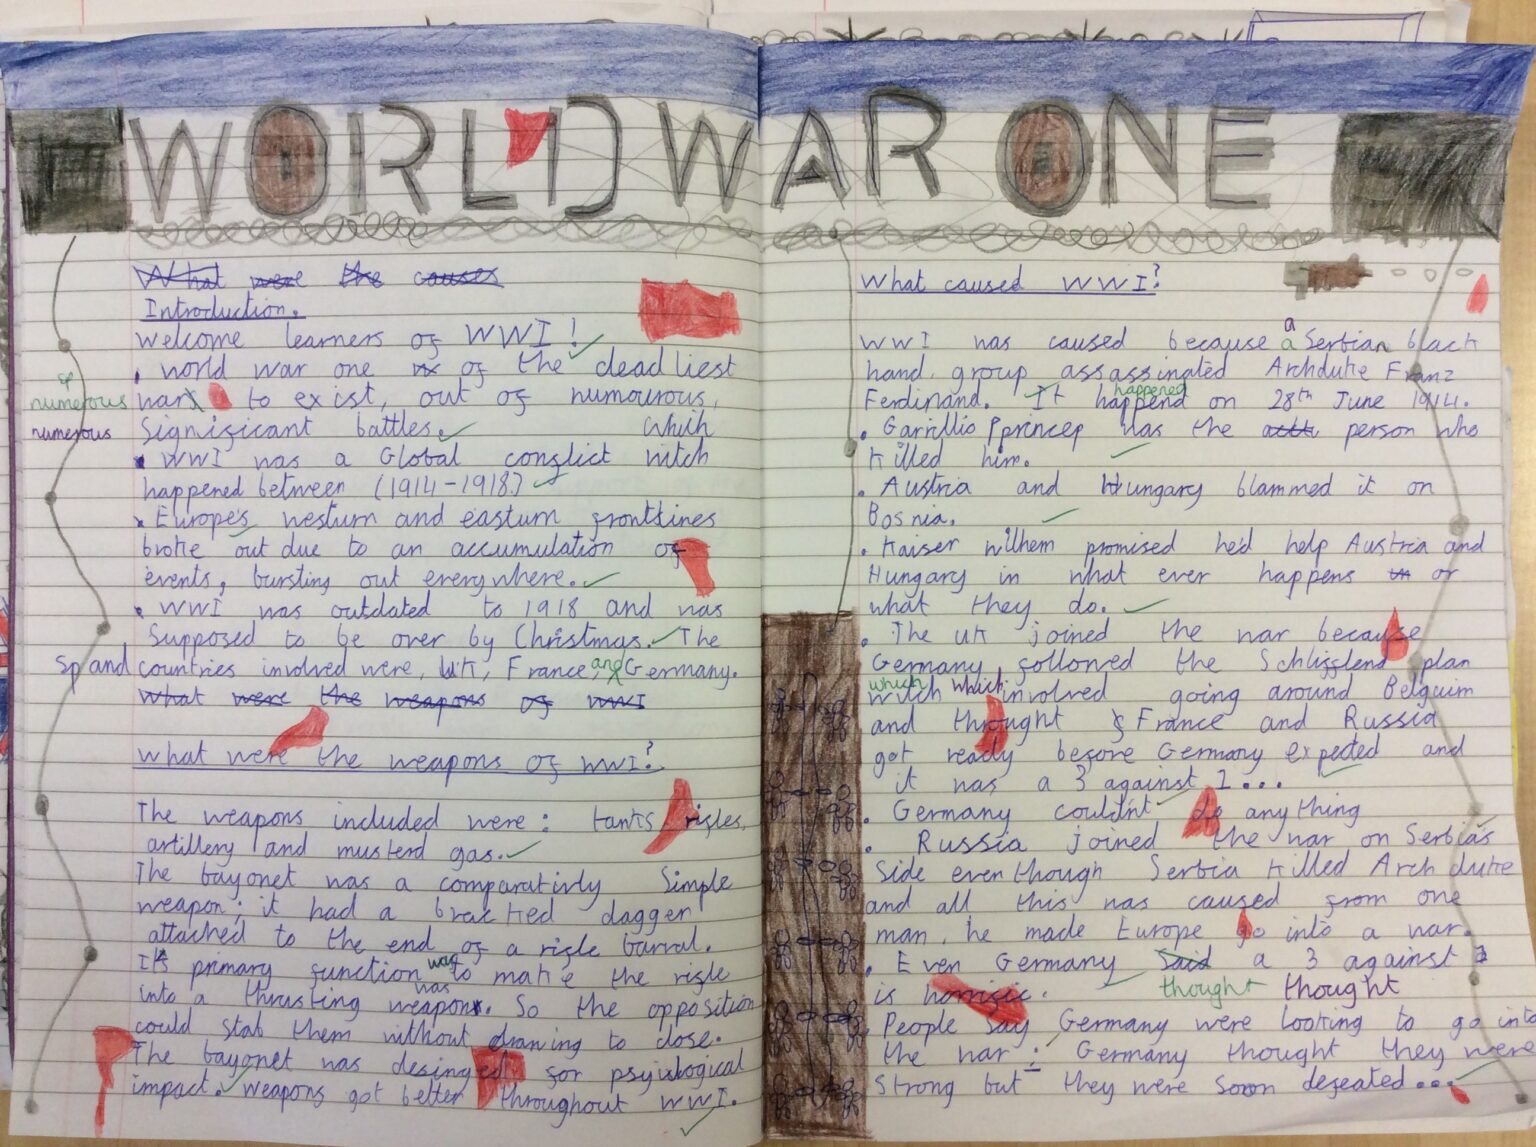 WORLD WAR ONE
What were the causes
Introduction.
Welcome learners of WWI!
. World war one of the deadliest
sp
numerous
war to exist, out of numourous,
numerous
Significant battles.
Which
. WWI was a Global conflict witch
happened between (1914-1918)
. Europe's westurn and easturn frontlines
broke out due to an accumulation of
events, bursting out everywhere.
. WWI was outdated to 1918 and was
Supposed to be over by Christmas. The
sp and countries involved were, UK, France, and Germany.
What were the weapons of WWI
What were the weapons of WWI?
The weapons included were: tanks, rifles,
artillery and musterd gas.
The bayonet was a comparativly Simple
weapon; it had a bracked dagger
attached to the end of a rifle barral.
was
Its primary function to make the rifle
was
into a thrusting weapon. So the opposition
could stab them without drawing to close.
The bayonet was desinged for psyiological
impact. Weapons got better throughout WWI.
What caused WWI?
a
WWI was caused because a Serbian black
hand group assassinated Archduke Franz
happened
Ferdinand. It happend on 28th June 1914.
. Garrillio Pprincep was the person who
killed him.
. Austria and Hungary blammed it on
Bosnia.
. Kaiser Wilhem promised he'd help Austria and
Hungary in what ever happens or
what they do.
. The UK joined the war because
Germany followed the Schlifflend plan
which which
witch involved going around Belguim
and throught France and Russia
got ready before Germany expected and
it was a 3 against 1...
. Germany couldn't do anything
. Russia joined the war on Serbia's
Side even though Serbia killed Arch duke
and all this was caused from one
man, he made Europe go into a war.
. Even Germany Said a 3 against 1
thought thought
is horrific.
. People say Germany were looking to go into
the war: Germany thought they were
Strong but they were soon defeated...